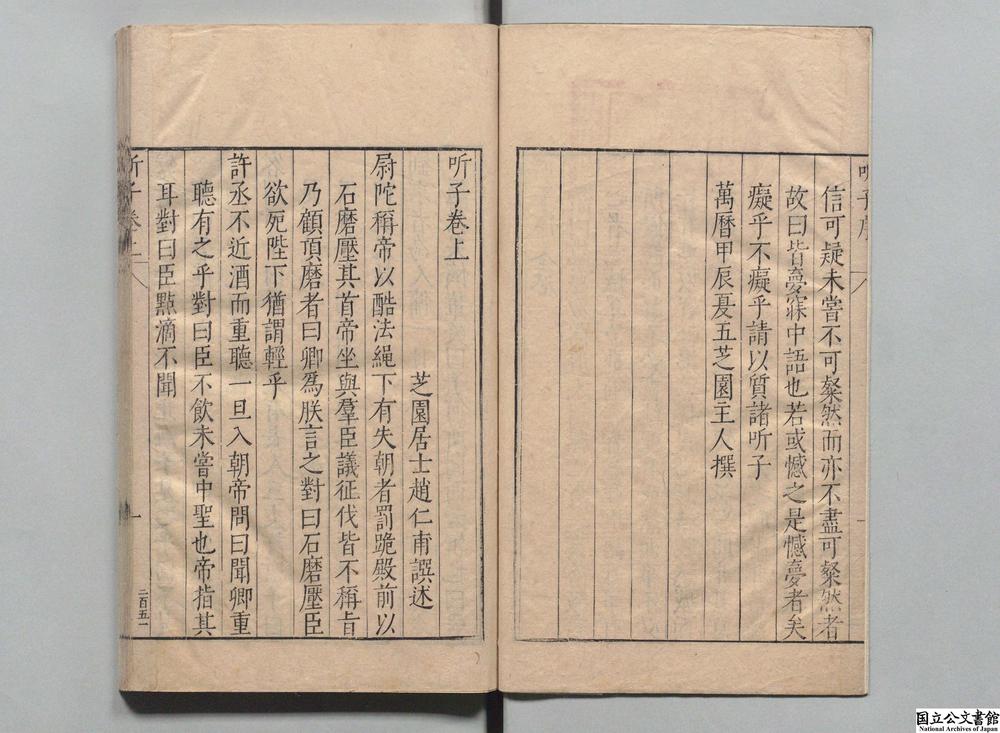 听子序
信可疑未嘗不可粲然而亦不盡可粲然者
故曰皆夢寐中語也若或憾之是憾夢者矣
癡乎不癡乎請以質諸听子
萬曆甲辰夏五芝園主人撰
听子卷上
芝園居士趙仁甫譔述
尉陀稱帝以酷法繩下有失朝者罰跪殿前以
石磨壓其首帝坐與羣臣議征伐皆不稱旨
乃顧頂磨者曰卿爲朕言之對曰石磨壓臣
欲死陛下猶謂輕乎
許丞不近酒而重聽一旦入朝帝問曰聞卿重
聽有之乎對曰臣不飲未嘗中聖也帝指其
耳對曰臣點滴不聞
听子卷上
一
二百五一
国立公文書館
National Archives of Japan